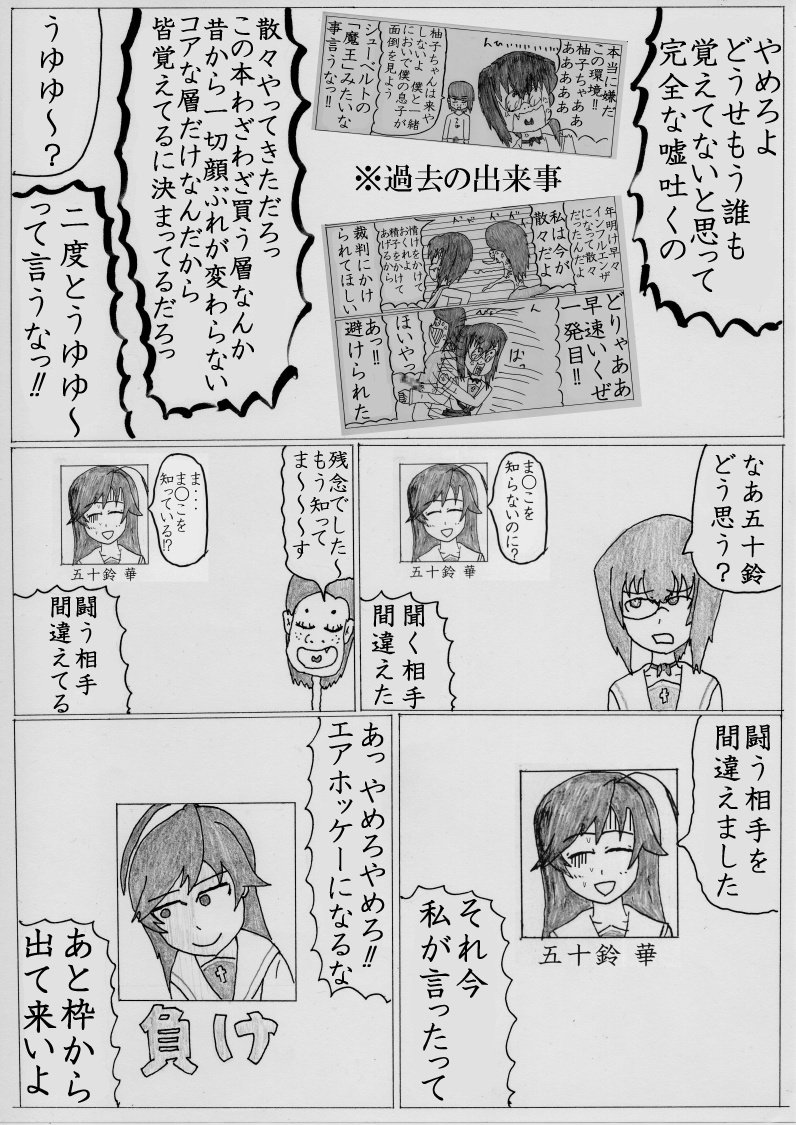 やめろよ
どうせもう誰も
覚えてないと思って
完全な嘘吐くの
本当に嫌だ
この環境!!
柚子ちゃああ
ああああああ
んひぃいいいい
柚子ちゃんは来や
しないよ 僕と一緒
においで僕の息子が
面倒を見よう
シューベルトの
「魔王」みたいな
事言うなっ!!
※過去の出来事
年明け早々
インフルエンザ
になって散々
だったんだよ
私は今が
散々だよ
情けをかけて
おくれよ
精子をかけて
あげるから
裁判にかけ
られてほしい
どりゃあああ
早速いくぜ
一発目!!
ほいやっ
あっ!!
避けられた
散々やってきただろっ
この本わざわざ買う層なんか
昔から一切顔ぶれが変わらない
コアな層だけなんだから
皆覚えてるに決まってるだろっ
うゆゆ～?
二度とうゆゆ～
って言うなっ!!
なあ五十鈴
どう思う?
ま〇こを
知らないのに?
五十鈴 華
聞く相手
間違えた
残念でした～
もう知って
ま～～～す
ま・・・
ま〇こを
知っている!?
五十鈴 華
闘う相手
間違えてる
闘う相手を
間違えました
五十鈴 華
それ今
私が言ったって
あっ やめろやめろ!!
エアホッケーになるな
負け
あと枠から
出て来いよ